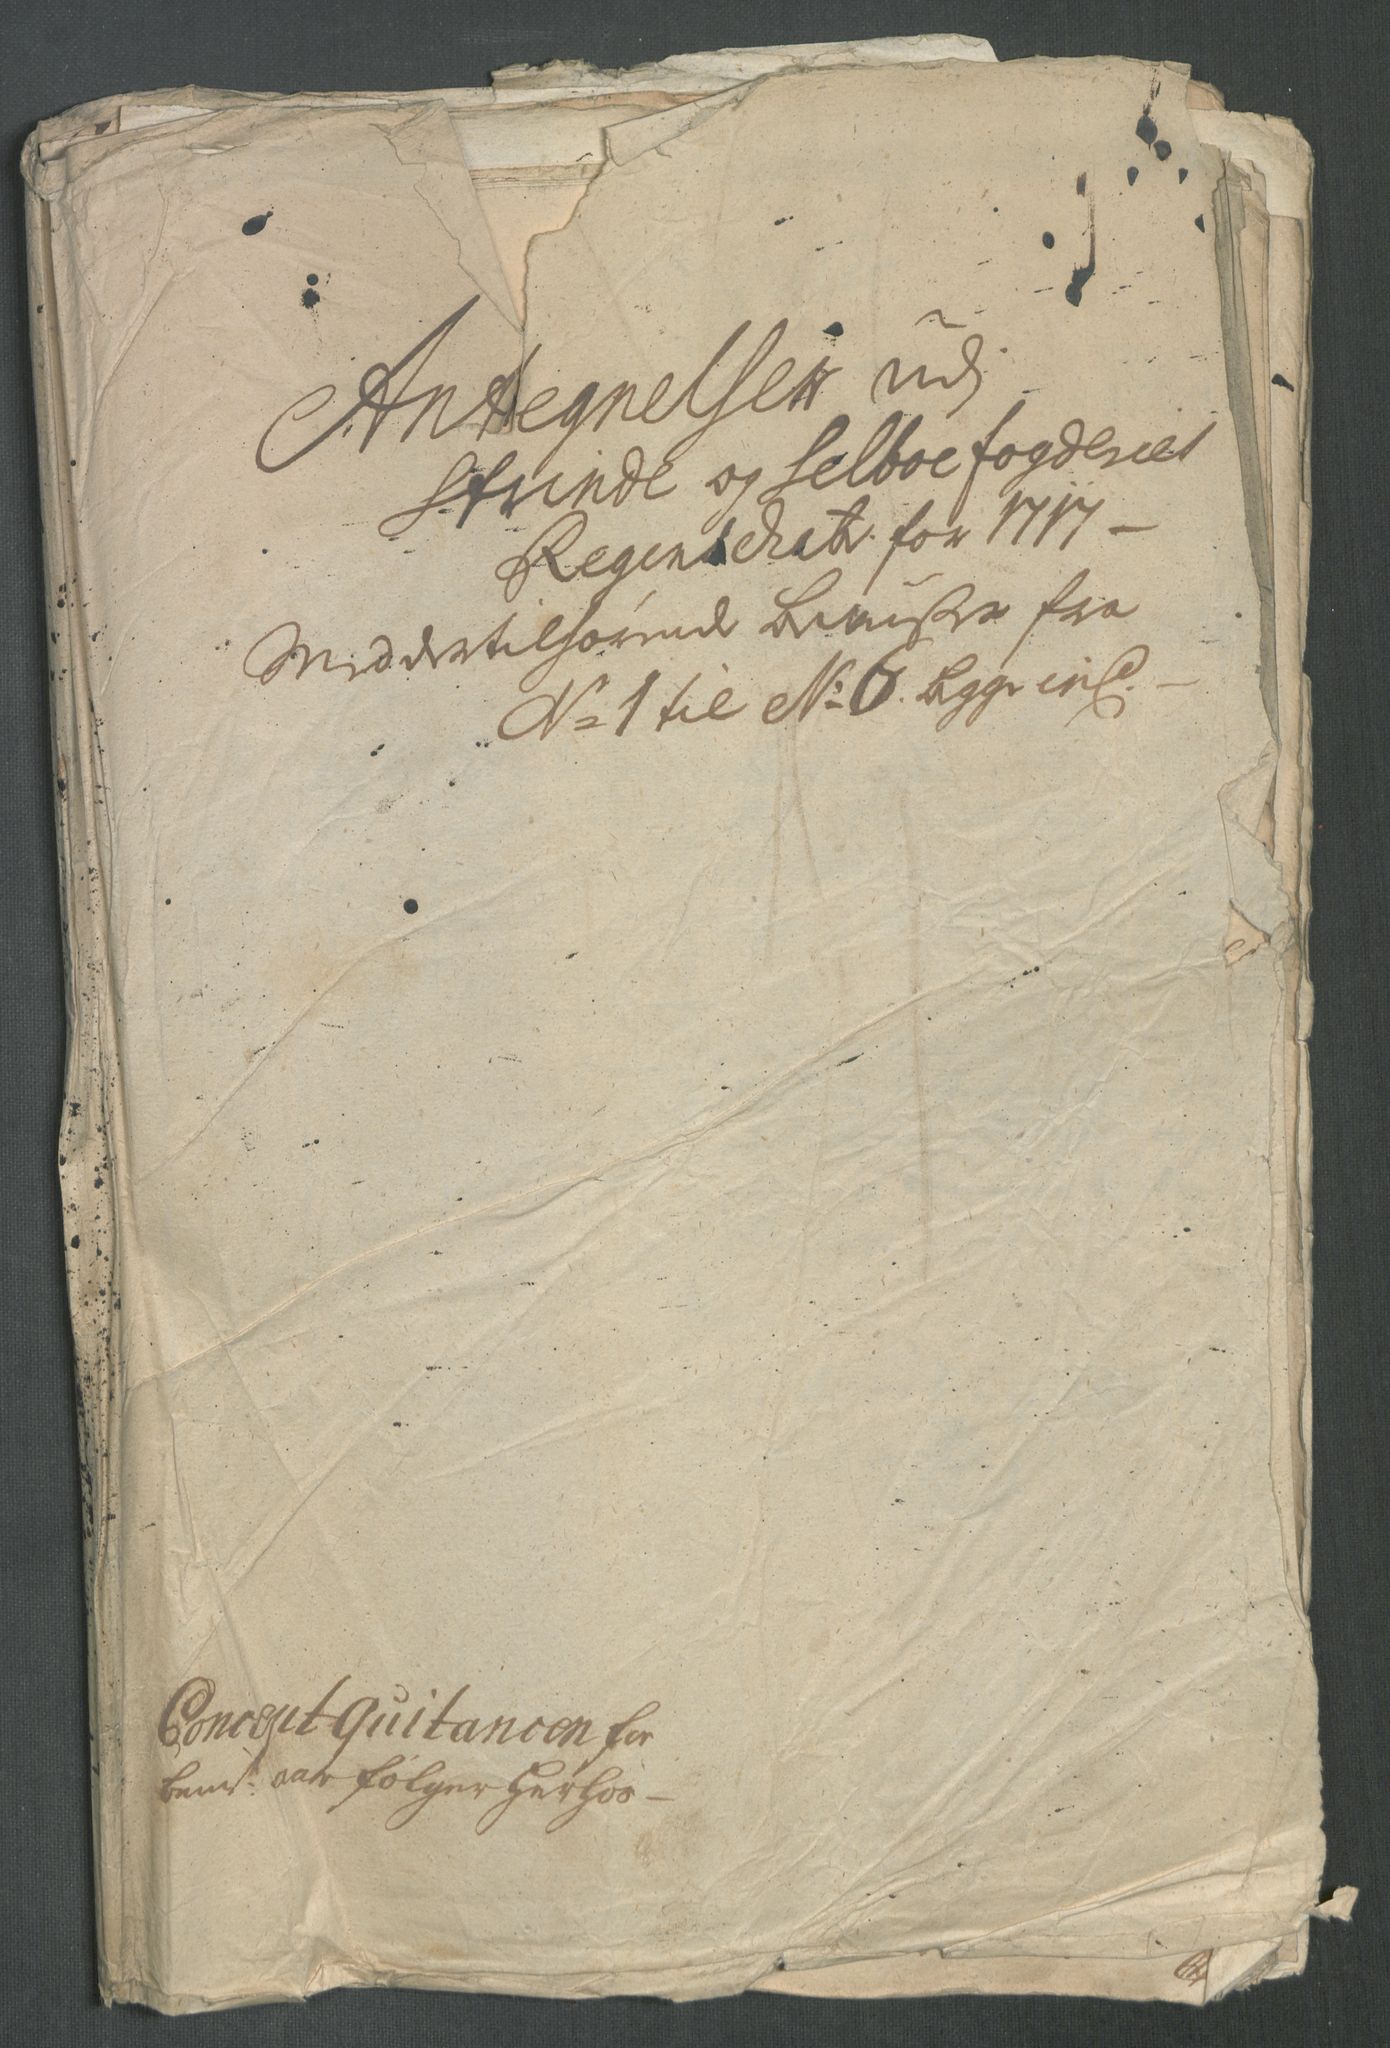 Antegnelser udj
Strinde og Selboe fogderies
Regenschab for 1717 –
Med dertilhørende beviiser fra
No 1 til No 6. begge incl. –
Concept quitancen for
bemt: aar følger herhos –